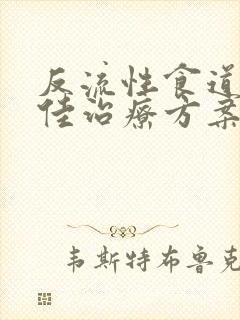 反流性食道
佳治療方案
韦斯特布鲁克